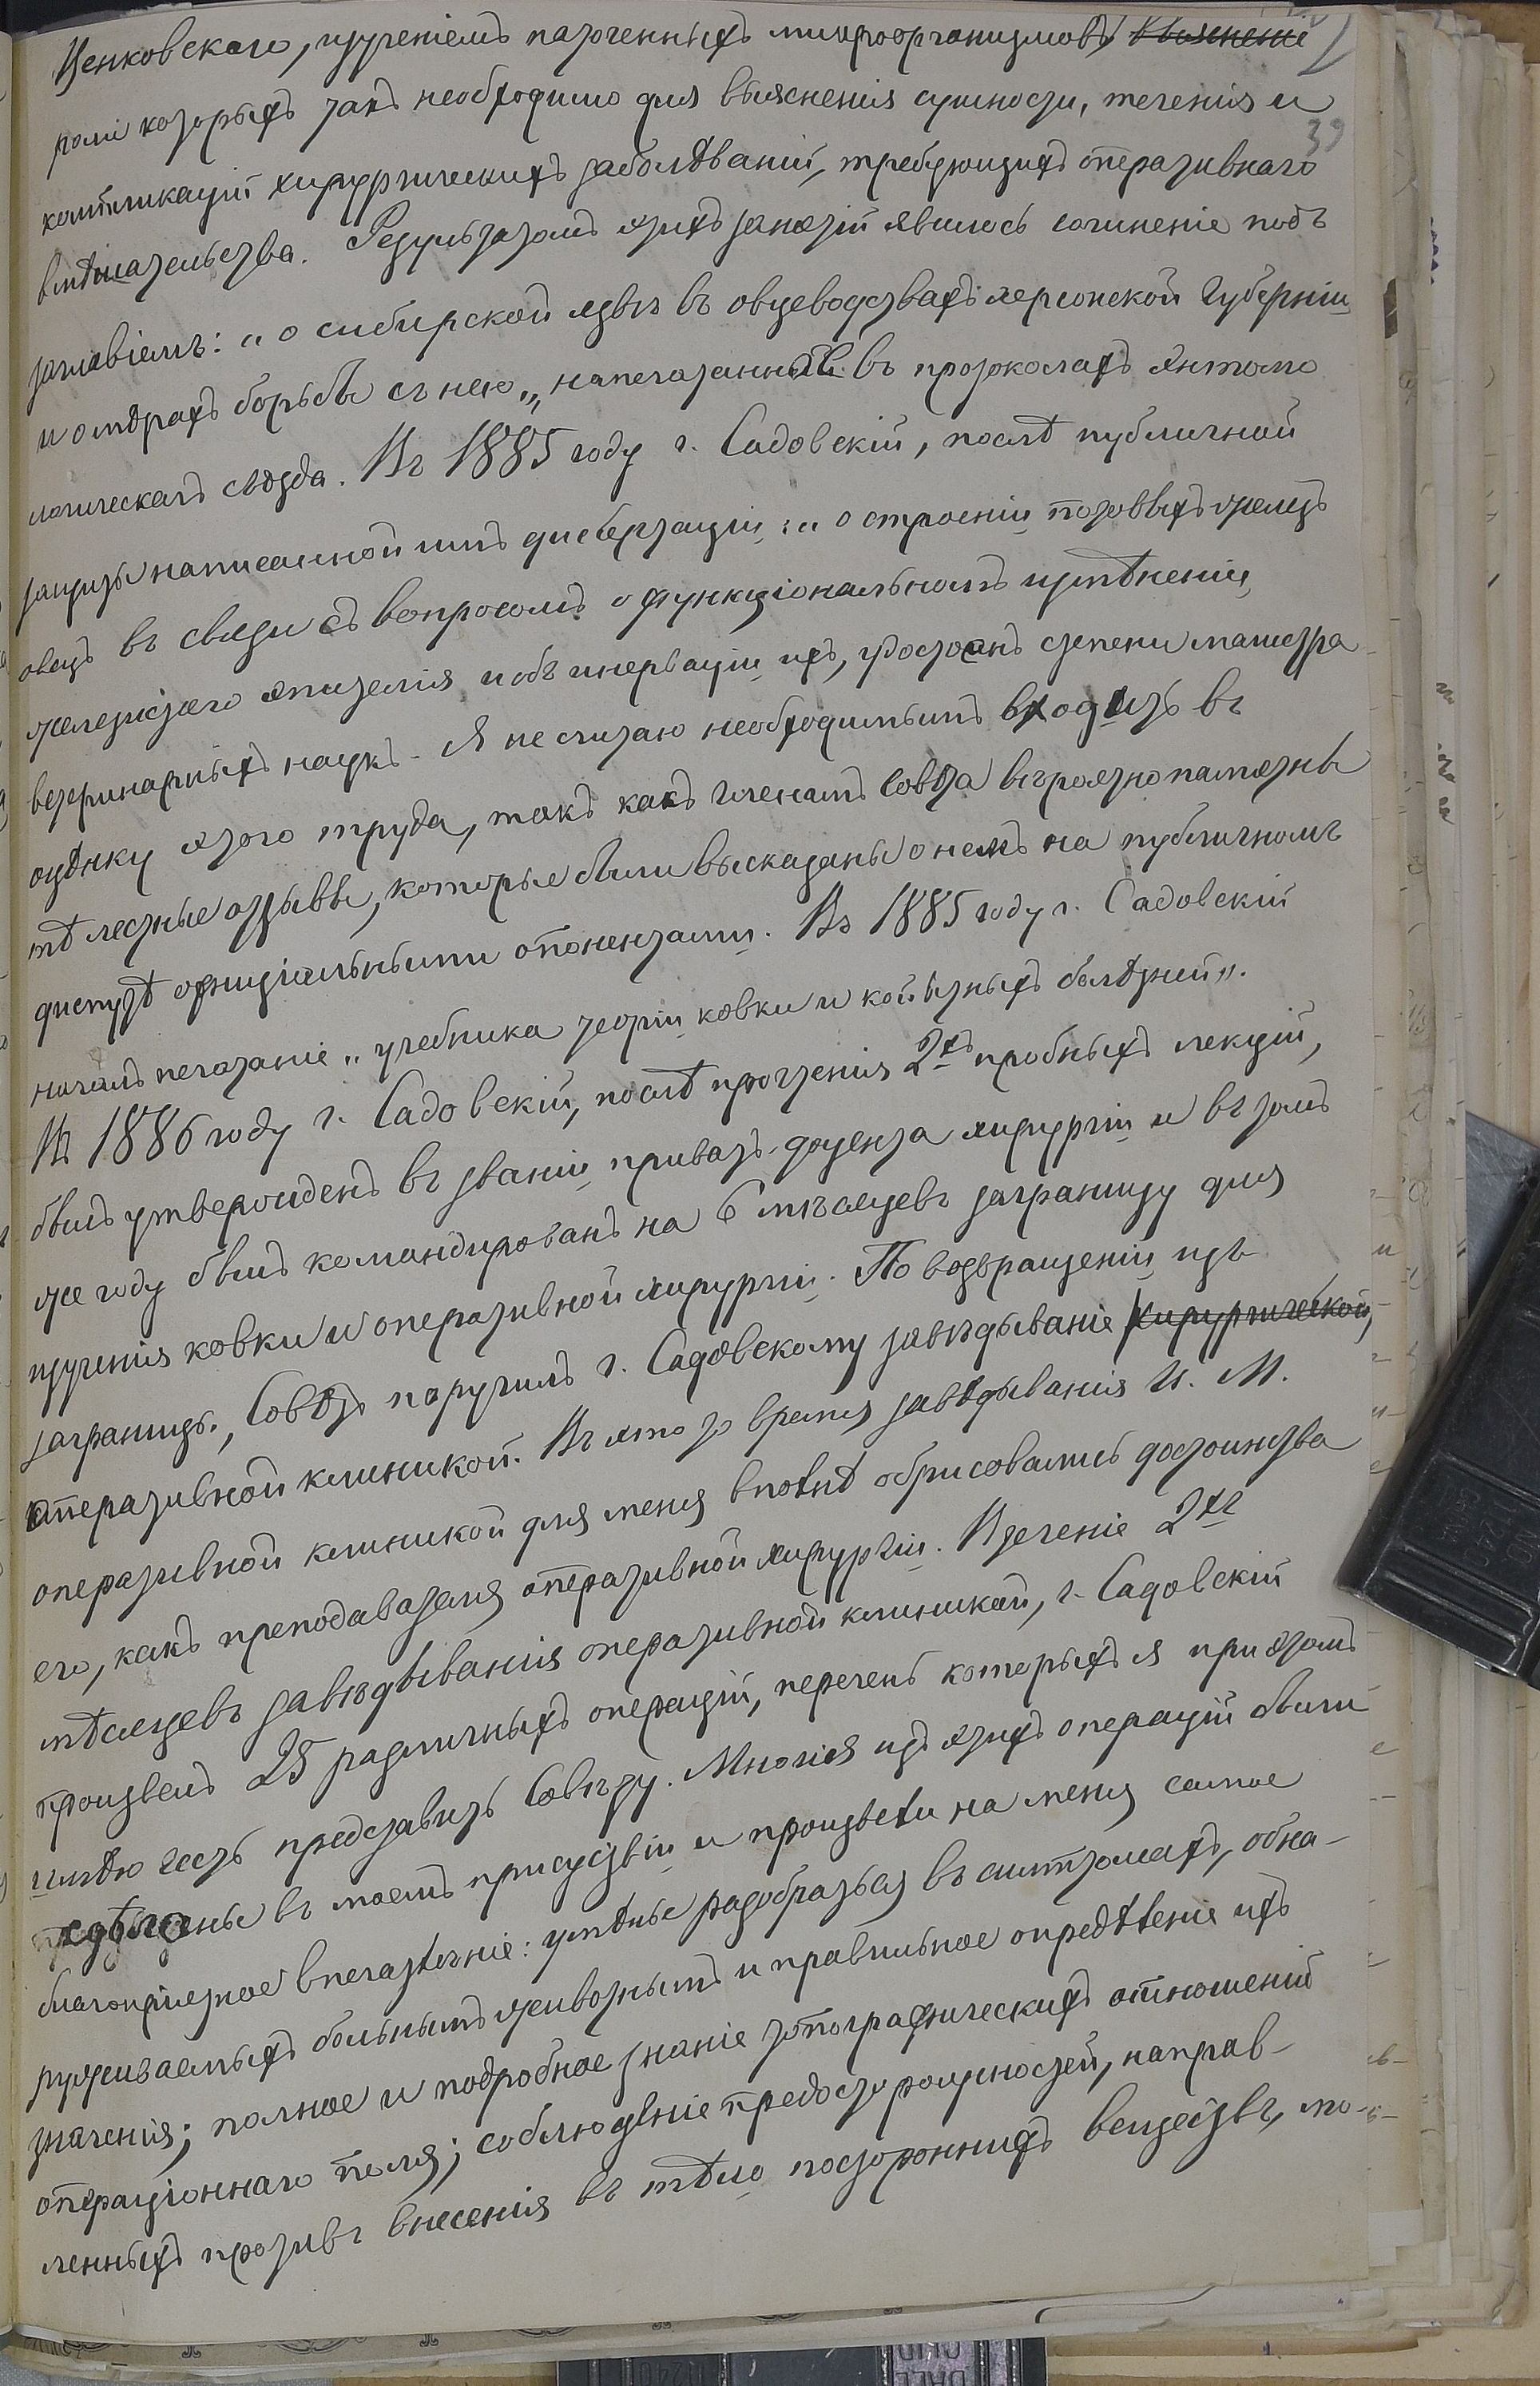 Ценковскаго, изученіемъ патогенныхъ микроорганизмовъ, выясненіе
роли которыхъ такъ необходимо для выясненія сущности, теченія и
39
компликацій хирургическихъ заболѣваній, требующихъ оперативнаго
вмѣшательства. Результатомъ этихъ занятій явилось сочиненіе подъ
заглавіемъ: „о сибирской язвѣ въ овцеводствахъ херсонской губерніи
и о мѣрахъ борьбы съ нею„, напечатанное въ протоколахъ энтомо
логическаго съѣзда. Въ 1885 году г. Садовскій, послѣ публичной
защиты написанной имъ диссертаціи: „о строеніи потовыхъ железъ
овецъ въ связи съ вопросомъ о функціональномъ измѣненіи
железистаго эпителія и объ инерваціи ихъ, удостоенъ степени магистра
ветеринарныхъ наукъ. Я не считаю необходимымъ входить въ
оцѣнку этого труда, такъ какъ членамъ Совѣта вѣроятно памятны
тѣ лестные отзывы, которые были высказаны о немъ на публичномъ
диспутѣ оффиціальными опонентами. Въ 1885 году г. Садовскій
началъ печатаніе „учебника теоріи ковки и копытныхъ болѣзней„.
Въ 1886 году г. Садовскій, послѣ прочтенія 2хъ пробныхъ лекцій,
былъ утвержденъ въ званіи приватъ-доцента хирургіи и въ томъ
же году былъ командированъ на 6 мѣсяцевъ заграницу для
изученія ковки и оперативной хирургіи. По возвращеніи изъ
заграницы, Совѣтъ поручилъ г. Садовскому завѣдываніе хирургической
оперативной клиникой. Въ это то время завѣдыванія И. М.
оперативной клиникой для меня вполнѣ обрисовались достоинства
его, какъ преподавателя оперативной хирургіи. Втеченіе 2хъ
мѣсяцевъ завѣдыванія оперативной клиникой, г. Садовскій
произвелъ 25 различныхъ операцій, перечень которыхъ я при этомъ
имѣю честь представить Совѣту. Многія изъ этихъ операцій были
сдѣланы въ моемъ присутствіи и произвели на меня самое
благопріятное впечатлѣніе: умѣнье разобраться въ симптомахъ, обна-
руживаемыхъ больнымъ животнымъ и правильное опредѣленіе ихъ
значенія; полное и подробное знаніе топографическихъ отношеній
операціоннаго поля; соблюденіе предосторожностей, направ-
ленныхъ противъ внесенія въ тѣло постороннихъ веществъ, мо-